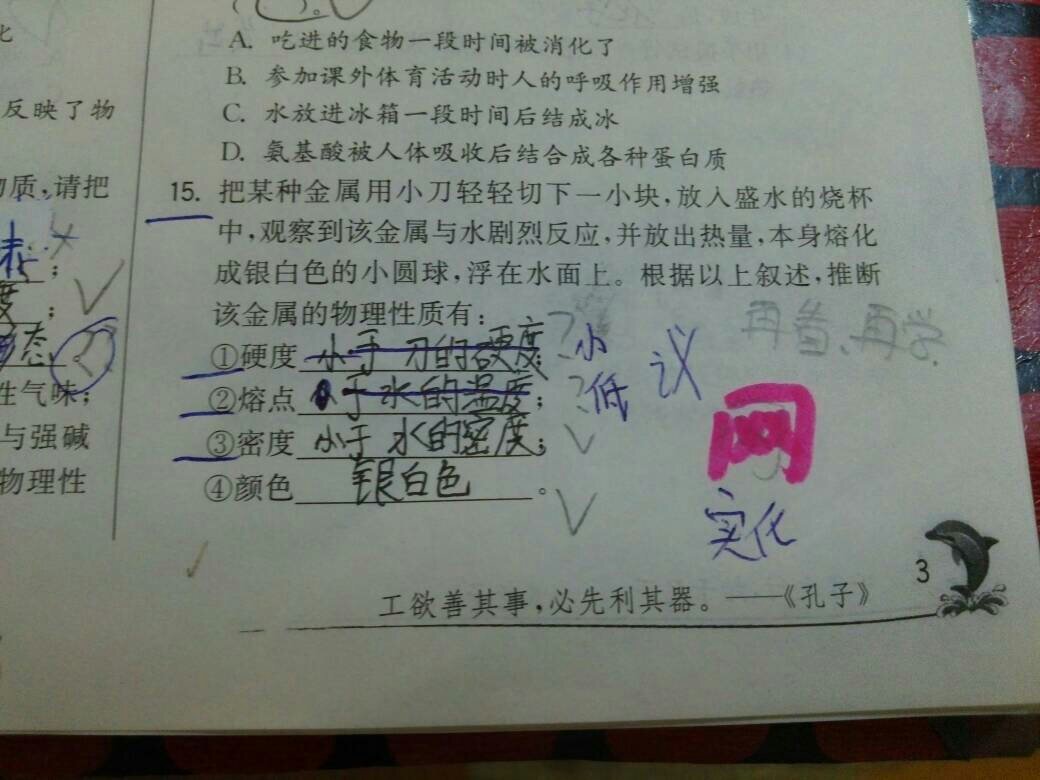 化
反映了物
物质,请把
度;
态
性气味;
与强碱
物理性
A. 吃进的食物一段时间被消化了
B. 参加课外体育活动时人的呼吸作用增强
C. 水放进冰箱一段时间后结成冰
D. 氨基酸被人体吸收后结合成各种蛋白质
15. 把某种金属用小刀轻轻切下一小块,放入盛水的烧杯
中,观察到该金属与水剧烈反应,并放出热量,本身熔化
成银白色的小圆球,浮在水面上。根据以上叙述,推断
该金属的物理性质有:
①硬度 小于刀的硬度; ? 小
②熔点 于水的温度; ? 低
③密度 小于水的密度;
④颜色 银白色。
议
再看、再学
网
实化
工欲善其事,必先利其器。——《孔子》
3